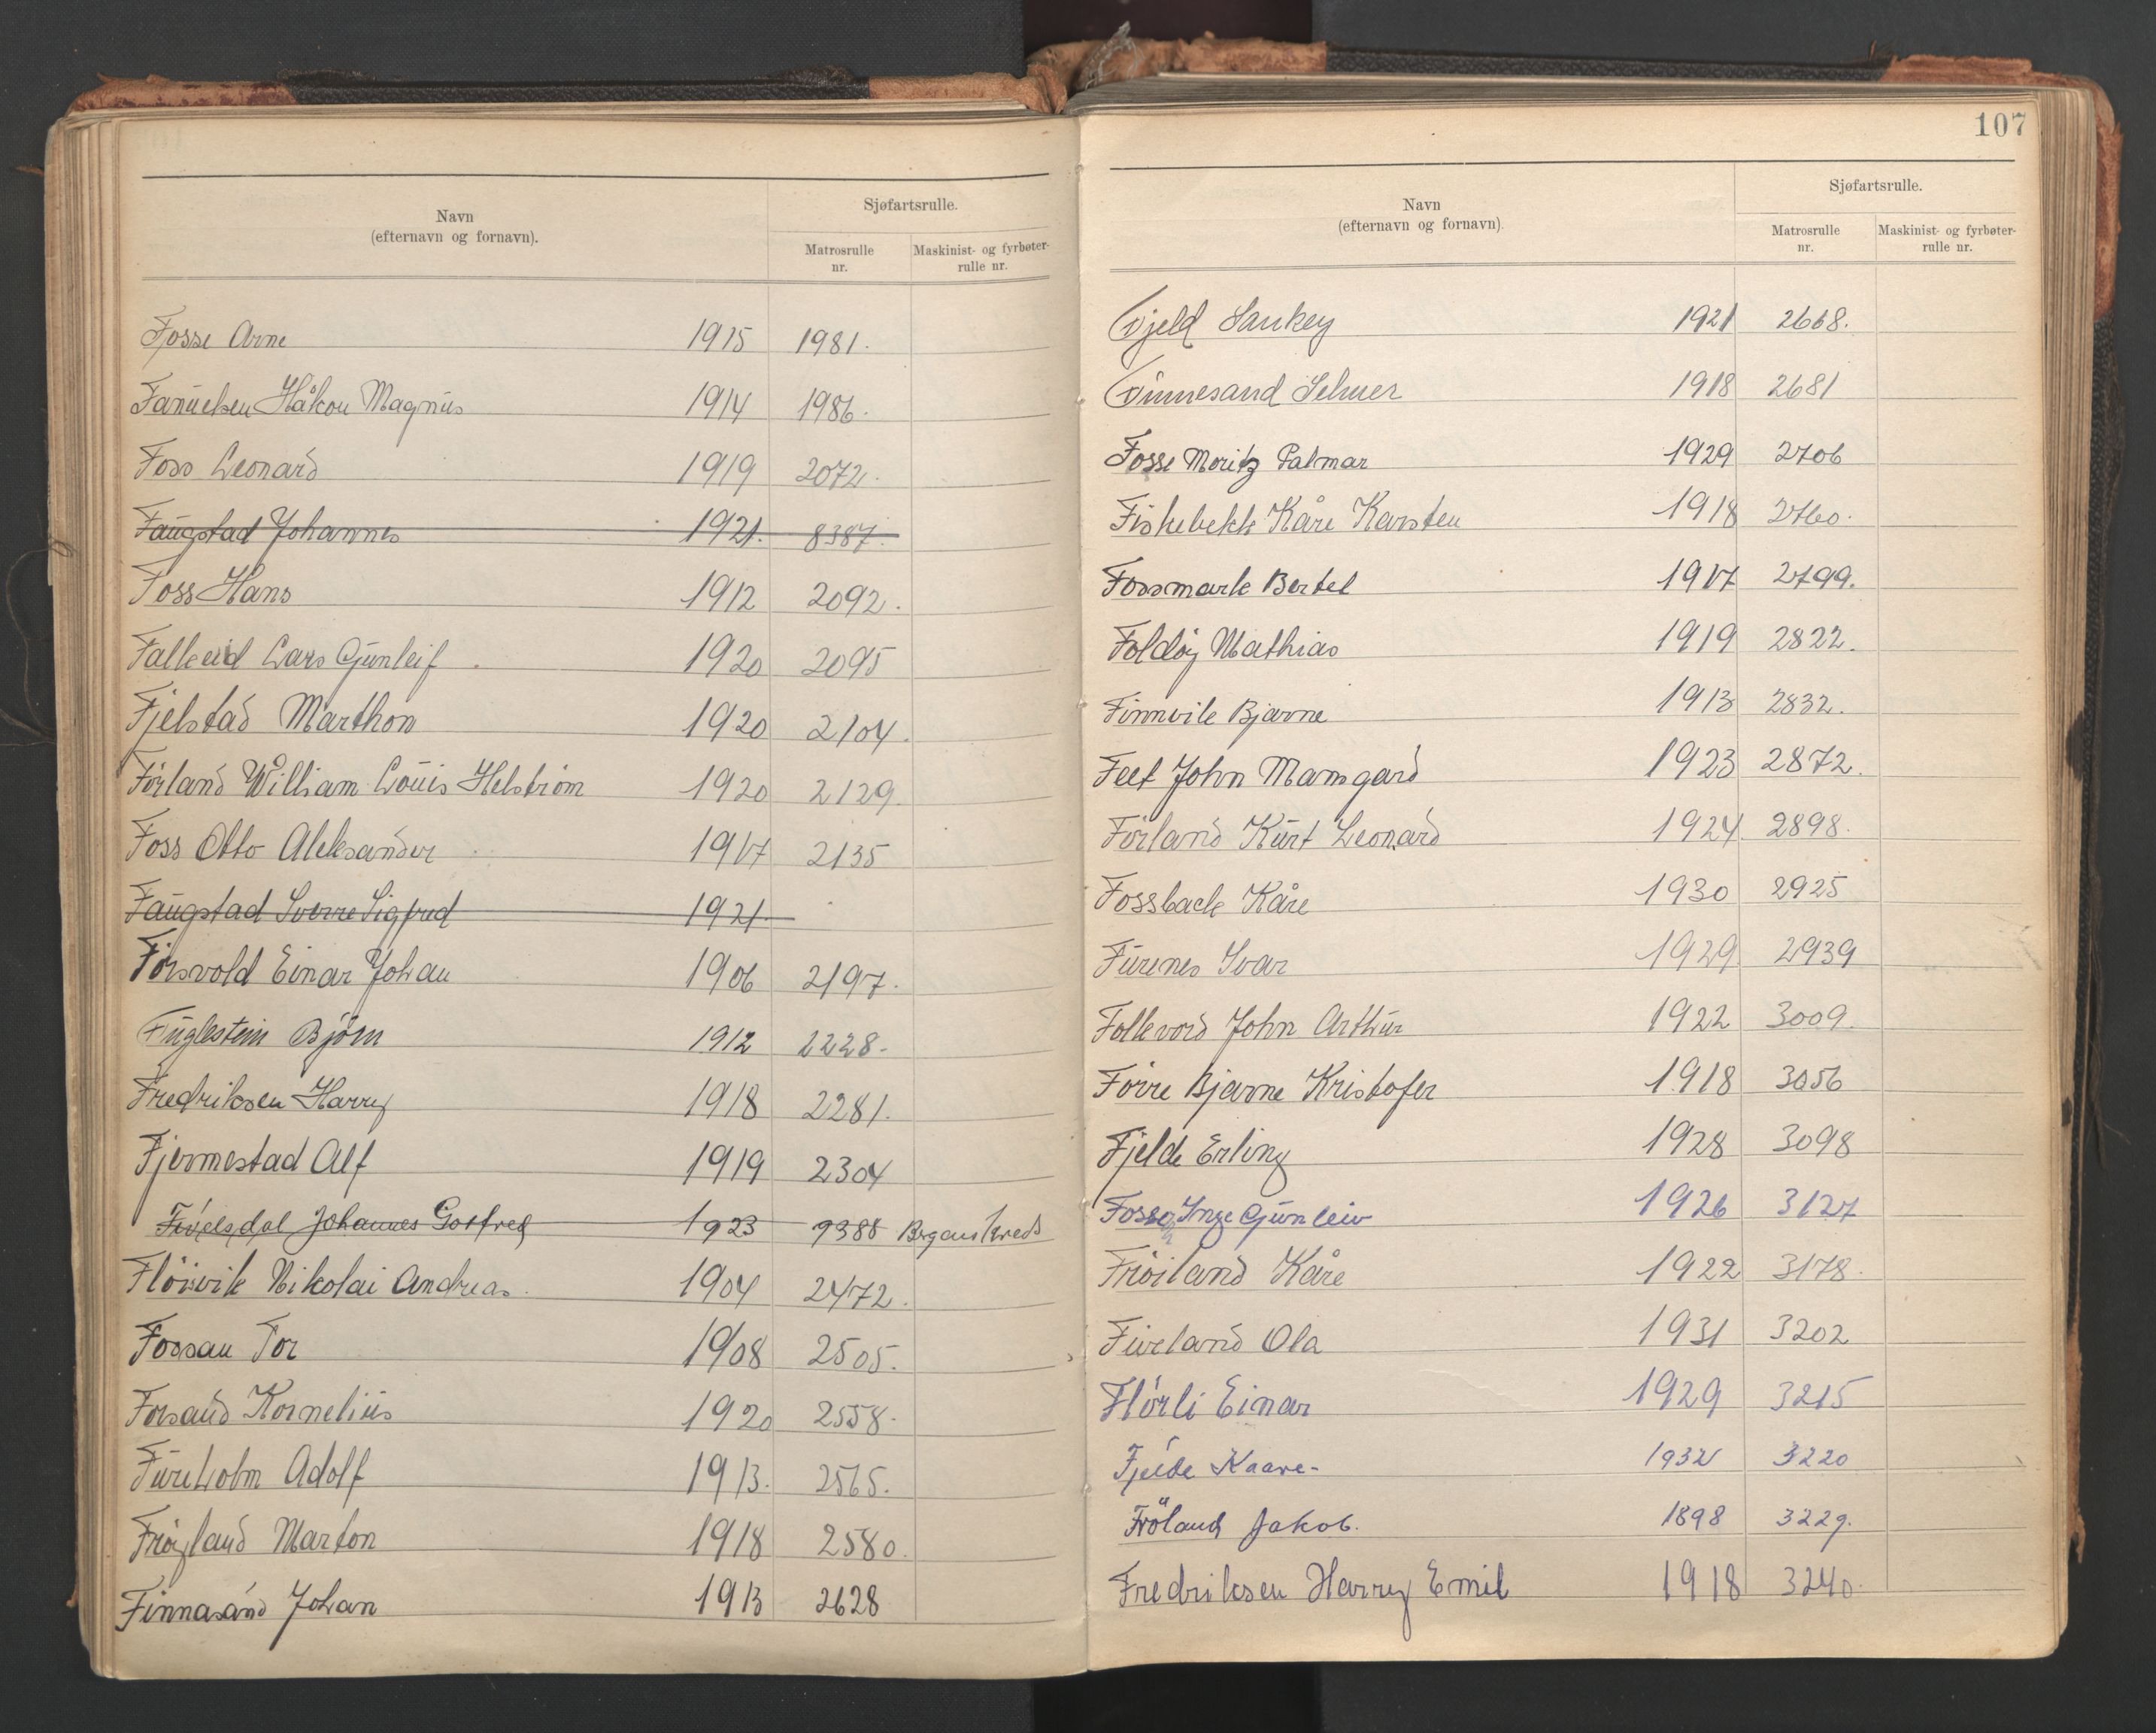 Navn
(efternavn og fornavn).
Sjøfartsrulle.
Matrosrulle
nr.
Maskinist- og fyrbøter-
rulle nr.
Fosse Arne 1915 1981.
Fanuelsen Håkon Magnus 1914 1986.
Foss Leonard 1919 2072.
Faugstad Johannes 1921. 8387.
Foss Hans 1912 2092.
Falkeid Lars Gunleif 1920 2095
Fjelstad Marthon 1920 2104.
Førland William Louis Helstrøm 1920 2129.
Foss Otto Aleksander 1917 2135
Faugstad Sverre Sigfred 1921
Forsvold Einar Johan 1906 2197.
Fuglestein Bjørn 1912 2228.
Fredriksen Harry 1918 2281.
Fjermestad Alf 1919 2304
Johannes Gotfred 1923 9388 Bergens kreds
Fløisvik Nikolai Andreas 1904 2472.
Fossan Tor 1908 2505.
Forsand Kornelius 1920 2558.
Fureholm Adolf 1913. 2565.
Frøyland Marton 1918 2580.
Finnasand Johan 1913 2628
107
Navn
(efternavn og fornavn).
Sjøfartsrulle.
Matrosrulle
nr.
Maskinist- og fyrbøter-
rulle nr.
Fjeld Sankey 1921 2668.
Finnesand Selmer 1918 2681
Fosse Moritz Palmar 1929 2706
Fiskebekk Kåre Karsten 1918 2760.
Fossmark Bertel 1917 2799.
Foldøy Mathias 1919 2822.
Finnvik Bjarne 1913 2832.
Feet John Mansgard 1923 2872.
Førland Kurt Leonard 1924 2898.
Fossback Kåre 1930 2925
Furenes Ivar 1929 2939
Follevord John Arthur 1922 3009.
Førre Bjarne Kristofer 1918 3056
Fjelde Erling 1928 3098
Fosse, Inge Gunleiv 1926 3127
Frøiland Kåre 1922 3178.
Fureland Ola 1931 3202
Flørli Einar 1929 3215
Fjelde Kaare- 1932 3220
Fröland Jakob. 1898 3229.
Fredriksen Harry Emil 1918 3240.